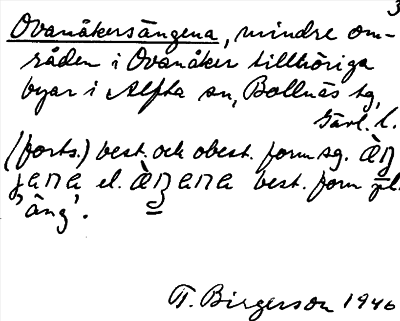 3
Ovanåkersängena, mindre om-
råden i Ovanåker tillhöriga
byar i Alfta sn, Bollnäs tg,
Gävl. l.
(forts.) best. och obest. form sg.
el. best. form pl.
'äng'.
T. Birgerson 1946